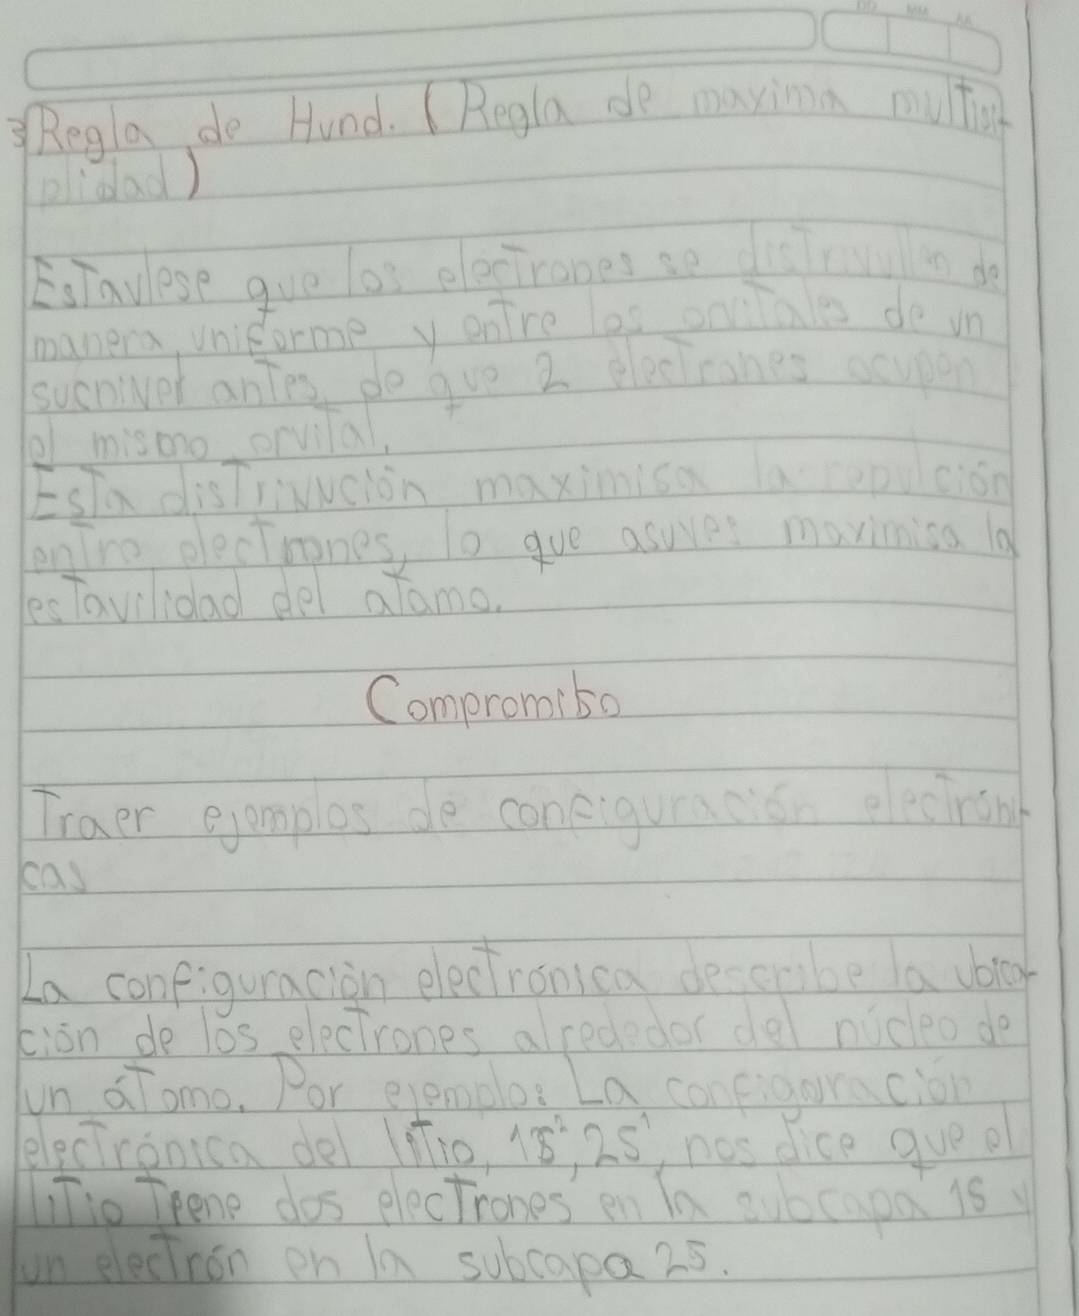 3 Regla de Hund. (Regla de maxima multi
plidad)
Estavlese que los electrones se distrivullen de
manera uniforme y entre los orvitales de un
sucnivel antes de que 2 electrones ocupen
el mismo orvital.
Esta distrivución maximisa la repulción
entre electrones, lo que asuves maximisa la
estavilidad del atamo.
Compromiso
Traer ejemplos de configuración electróni
cas
La configuración electrónica describe la ubica
ción de los electrones alrededor del núcleo de
un átomo. Por ejemplo: La configuración
electrónica del litio, 1s², 2s¹, nos dice que el
litio tiene dos electrones en la subcapa 1s y
un electrón en la subcapa 2s.